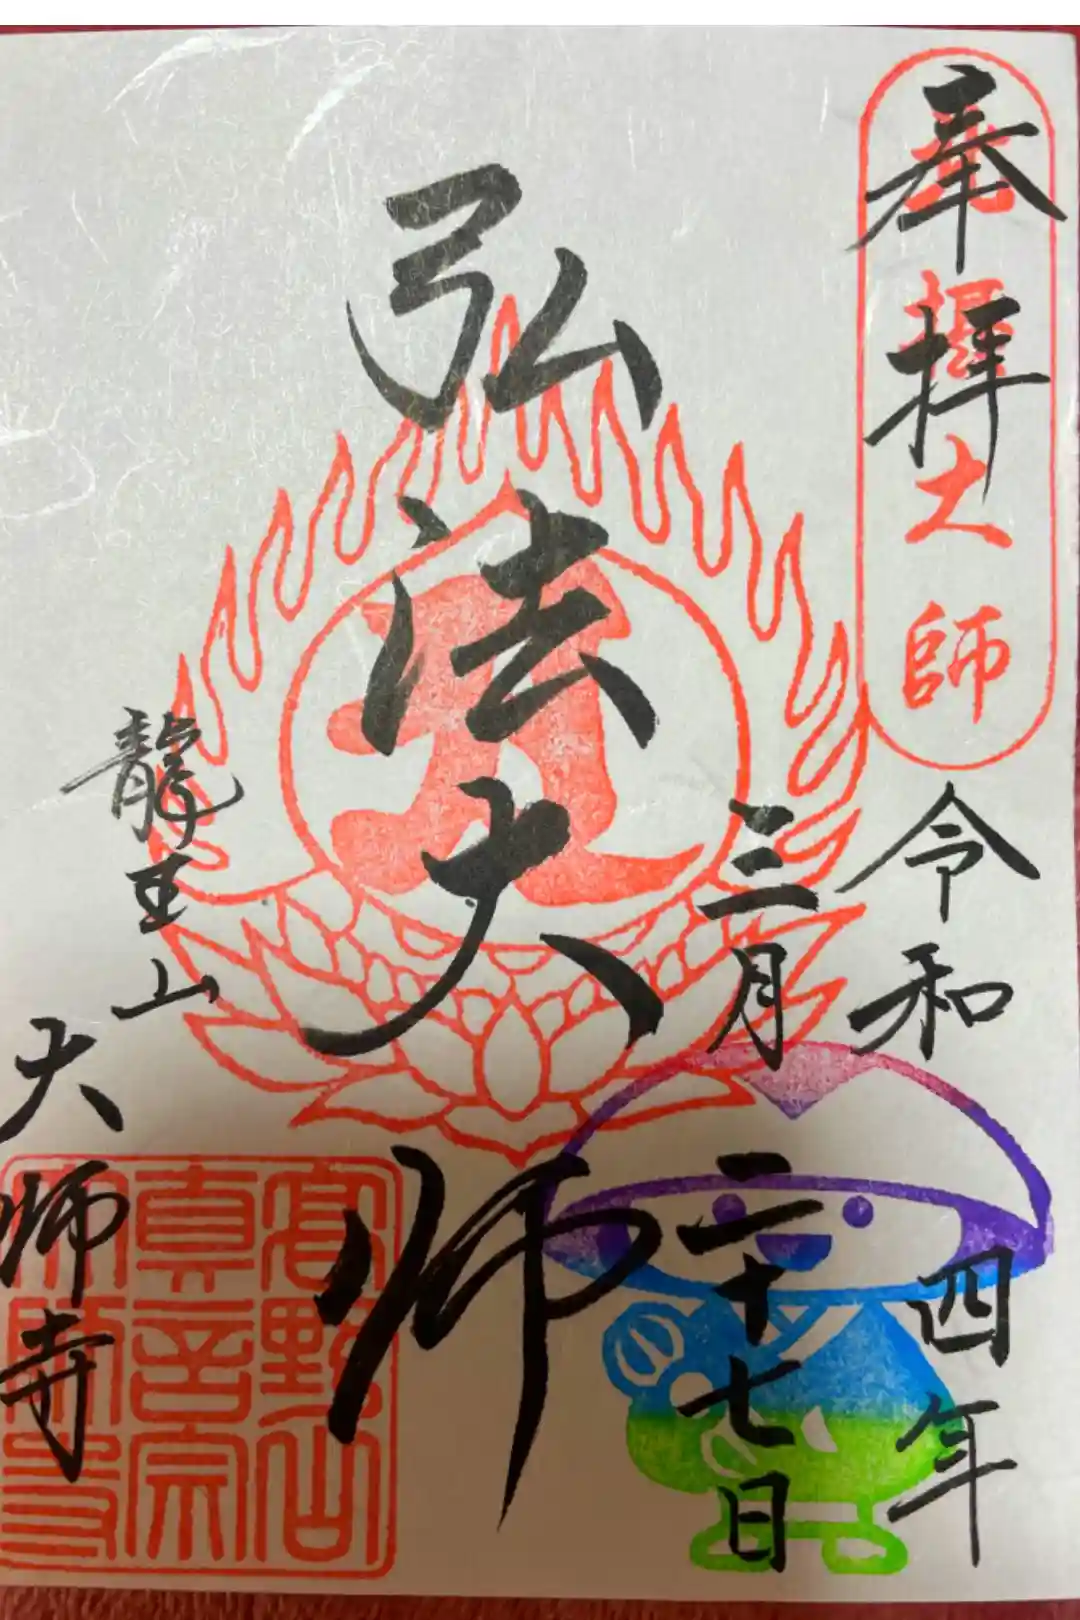 奉拝
大師
令和四年
三月二十七日
弘法大師
龍王山
大师寺
高野山
真言宗
大師寺